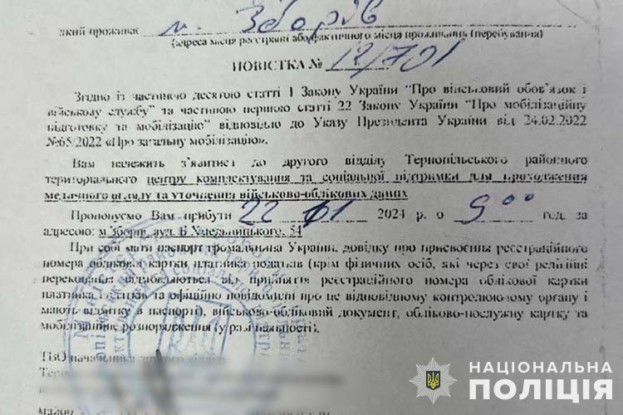 який проживає м. Зборів
(адреса місця реєстрації або фактичного місця проживання (перебування)
ПОВІСТКА № 12/701
Згідно із частиною десятою статті 1 Закону України “Про військовий обов’язок і
військову службу” та частиною першою статті 22 Закону України “Про мобілізаційну
підготовку та мобілізацію” відповідно до Указу Президента України від 24.02.2022
№65/2022 «Про загальну мобілізацію».
Вам належить з'явитися до другого відділу Тернопільського районного
територіального центру комплектування та соціальної підтримки для проходження
медичного огляду та уточнення військово-облікових даних
Пропонуємо Вам прибути 22 01 2024 р. о 9 00 год. за
адресою: м Зборів, вул. Б Хмельницького, 51
При собі мати паспорт громадянина України, довідку про присвоєння реєстраційного
номера облікової картки платника податків (крім фізичних осіб, які через свої релігійні
переконання відмовляються від прийняття реєстраційного номера облікової картки
платника податків та офіційно повідомили про це відповідному контролюючому органу і
мають відмітку в паспорті), військово-обліковий документ, обліково-послужну картку та
мобілізаційне розпорядження (у разі наявності).
ТВО начальника
НАЦІОНАЛЬНА
ПОЛІЦІЯ